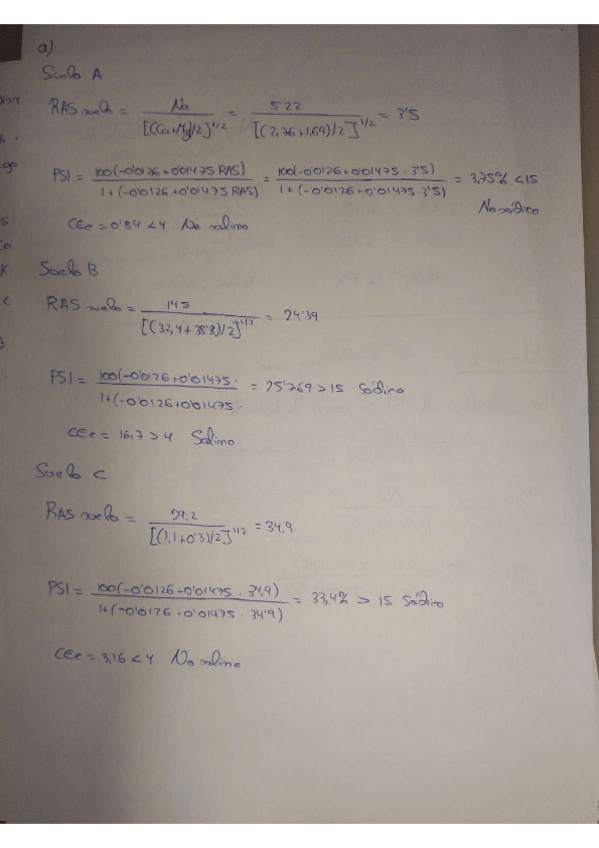 a)
Suelo A
RAS suelo = Na / [(Ca+Mg)/2]^1/2 = 5'22 / [(2,76+1,69)/2]^1/2 = 3'5
PSI = 100(-0'0126+0'01475 RAS) / 1+(-0'0126+0'01475 RAS) = 100(-0'0126+0'01475·3'5) / 1+(-0'0126+0'01475·3'5) = 3,75% <15
No sódico
CEe = 0'84 <4 No salino
Suelo B
RAS suelo = 145 / [(32,4+38'3)/2]^1/2 = 24'39
PSI = 100(-0'0126+0'01475· / 1+(-0'0126+0'01475· = 25'769 >15 Sódico
CEe = 16,7 >4 Salino
Suelo C
RAS suelo = 29,2 / [(1,1+0'3)/2]^1/2 = 34,9
PSI = 100(-0'0126+0'01475 · 34,9) / 1+(-0'0126+0'01475 · 34'9) = 33,4% > 15 Sódico
CEe = 3,16 <4 No salino